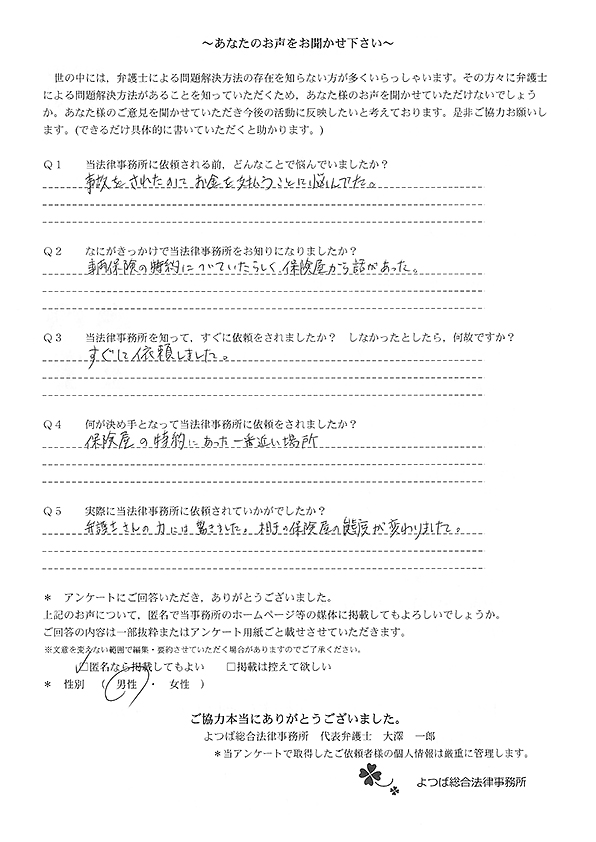 ～あなたのお声をお聞かせ下さい～
世の中には、弁護士による問題解決方法の存在を知らない方が多くいらっしゃいます。その方々に弁護士
による問題解決方法があることを知っていただくため、あなた様のお声を聞かせていただけないでしょう
か。あなた様のご意見を聞かせていただき今後の活動に反映したいと考えております。是非ご協力お願いし
ます。(できるだけ具体的に書いていただくと助かります。)
Ｑ１ 当法律事務所に依頼される前、どんなことで悩んでいましたか？
事故をされたのにお金を支払うことに悩んでた。
Ｑ２ なにがきっかけで当法律事務所をお知りになりましたか？
車両保険の特約についていたらしく保険屋から話があった。
Ｑ３ 当法律事務所を知って，すぐに依頼をされましたか？ しなかったとしたら，何故ですか？
すぐに依頼しました。
Ｑ４ 何が決め手となって当法律事務所に依頼をされましたか？
保険屋の特約にあった一番近い場所
Ｑ５ 実際に当法律事務所に依頼されていかがでしたか？
弁護士さんの力には驚きました。相手の保険屋の態度が変わりました。
＊ アンケートにご回答いただき，ありがとうございました。
上記のお声について，匿名で当事務所のホームページ等の媒体に掲載してもよろしいでしょうか。
ご回答の内容は一部抜粋またはアンケート用紙ごと載せさせていただきます。
※文意を変えない範囲で編集・要約させていただく場合がありますのでご了承ください。
☑匿名なら掲載してもよい □掲載は控えて欲しい
＊ 性別 （ 男性 ・ 女性 ）
ご協力本当にありがとうございました。
よつば総合法律事務所 代表弁護士 大澤 一郎
＊当アンケートで取得したご依頼者様の個人情報は厳重に管理します。
よつば総合法律事務所